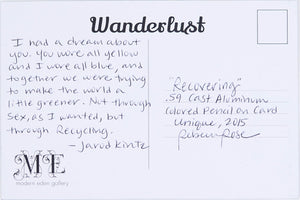 Wanderlust
I had a dream about
you. You were all yellow
and I was all blue, and
together we were trying
to make the world a
little greener. Not through
sex, as I wanted, but
through Recycling.
- Jarod Kintz
"Recovering"
.59 Cast Aluminum
Colored Pencil on Card
Unique, 2015
Rebecca Rose
ME
modern eden gallery